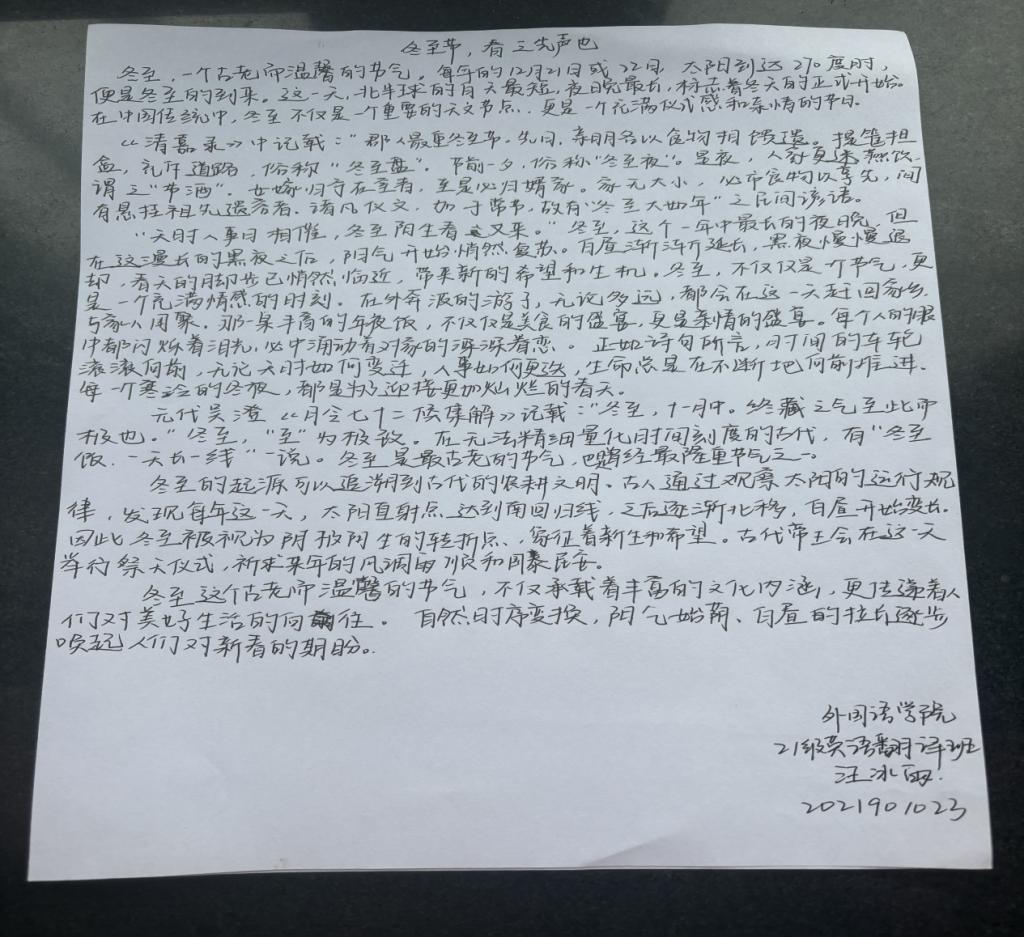 冬至节,春之先声也
冬至,一个古老而温馨的节气。每年的12月21日或22日,太阳到达270度时,
便是冬至的到来。这一天,北半球的白天最短,夜晚最长,标志着冬天的正式开始。
在中国传统中,冬至不仅是一个重要的天文节点,更是一个充满仪式感和亲情的节日。
《清嘉录》中记载:“郡人最重冬至节。先日,亲朋各以食物相馈遗。提筐担
盒,充斥道路,俗称“冬至盘”。节前一夕,俗称“冬至夜”。是夜,人家更速燕饮,
谓之“节酒”。女嫁归宁在室者,至是必归婿家。家无大小,必市食物以享先,间
有悬挂祖先遗容者。诸凡仪文,加于常节,故有“冬至大如年”之民间谚语。
“天时人事日相催,冬至阳生春又来。”冬至,这个一年中最长的夜晚,但
在这漫长的黑夜之后,阳气开始悄然复苏。白昼渐渐延长,黑夜慢慢退
却,春天的脚步已悄然临近,带来新的希望和生机。冬至,不仅仅是个节气,更
是一个充满情感的时刻。在外奔波的游子,无论多远,都会在这一天赶回家乡,
与家人团聚。那一桌丰盛的年夜饭,不仅仅是美食的盛宴,更是亲情的盛宴。每个人的眼
中都闪烁着泪光,心中涌动着对家的深深眷恋。正如诗句所言,时间的车轮
滚滚向前,无论天时如何变迁,人事如何更迭,生命总是在不断地向前推进。
每一个寒冷的冬夜,都是为了迎接更加灿烂的春天。
元代吴澄《月令七十二候集解》记载:“冬至,十一月中。终藏之气至此而
极也。”冬至,“至”为极致。在无法精细量化时间刻度的古代,有“冬至
饭,一天长一线”一说。冬至是最古老的节气,也曾经最隆重节气之一。
冬至的起源可以追溯到古代的农耕文明。古人通过观察太阳的运行规
律,发现每年这一天,太阳直射点达到南回归线,之后逐渐北移,白昼开始变长。
因此,冬至被视为阴极阳生的转折点,象征着新生和希望。古代帝王会在这一天
举行祭天仪式,祈求来年的风调雨顺和国泰民安。
冬至这个古老而温馨的节气,不仅承载着丰富的文化内涵,更传递着人
们对美好生活的向往。自然时序变换,阳气始萌、白昼的拉长逐步
唤起人们对新春的期盼。
外国语学院
21级英语翻译班
汪冰雨
2021901023